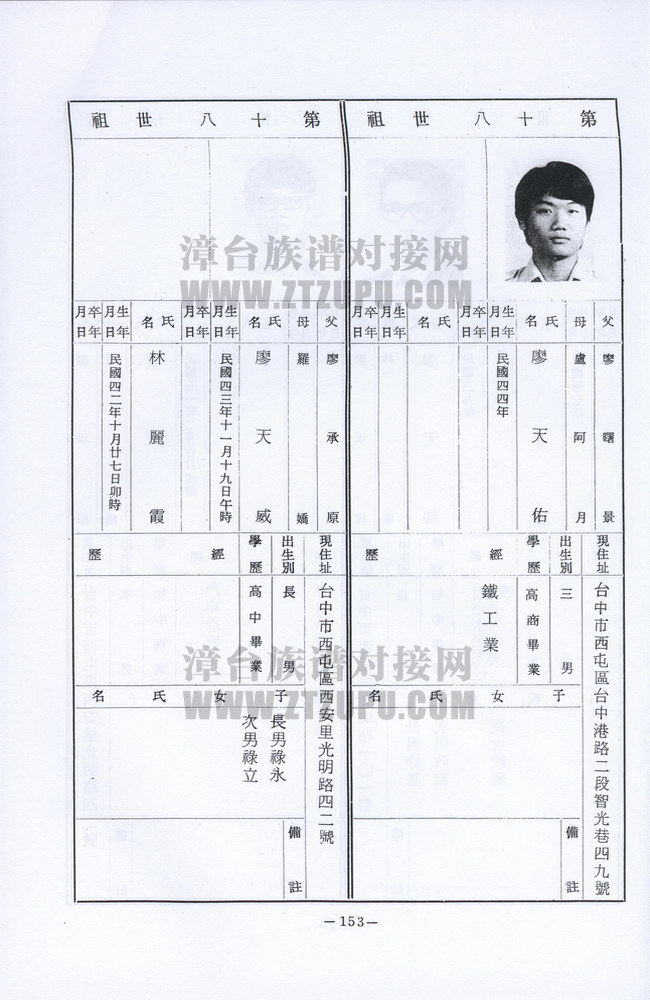 第十八世祖
父 廖曙景
母 盧阿月
氏名 廖天佑
生年月日 民國四四年
卒年月日
氏名
生年月日
卒年月日
現住址 台中市西屯區台中港路二段智光巷四九號
出生別 三男
學歷 高商畢業
經歷 鐵工業
子女氏名
備註
第十八世祖
父 廖承原
母 羅嬌
氏名 廖天威
生年月日 民國四三年十一月十九日午時
卒年月日
氏名 林麗霞
生年月日 民國四二年十月廿七日卯時
卒年月日
現住址 台中市西屯區西安里光明路四二號
出生別 長男
學歷 高中畢業
經歷
子女氏名
長男祿永
次男祿立
備註
—153—
漳台族谱对接网
WWW.ZTZUPU.COM
漳台族谱对接网
WWW.ZTZUPU.COM